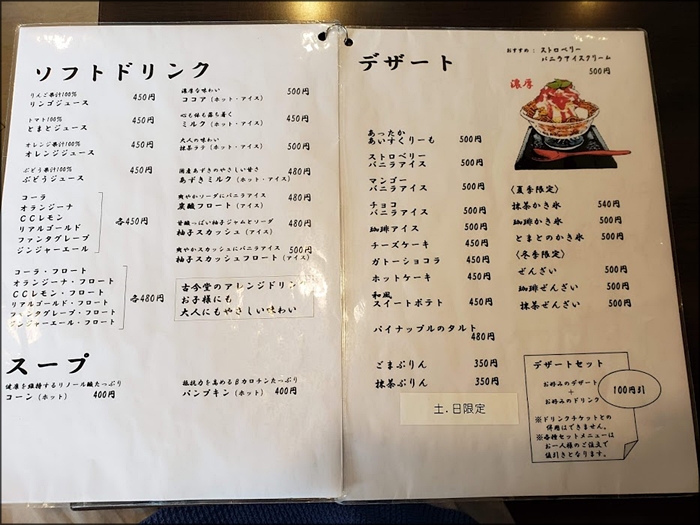 ソフトドリンク
りんご果汁100%
リンゴジュース 450円
トマト100%
とまとジュース 450円
オレンジ果汁100%
オレンジジュース 450円
ぶどう果汁100%
ぶどうジュース 450円
コーラ
オランジーナ
CCレモン
リアルゴールド
ファンタグレープ
ジンジャーエール
各450円
コーラ・フロート
オランジーナ・フロート
CCレモン・フロート
リアルゴールド・フロート
ファンタグレープ・フロート
ジンジャーエール・フロート
各480円
濃厚な味わい
ココア (ホット・アイス) 500円
心も体も落ち着く
ミルク (ホット・アイス) 450円
大人の味わい
抹茶ラテ (ホット・アイス) 500円
国産あずきのやさしい甘さ
あずきミルク (ホット・アイス) 480円
爽やかソーダにバニラアイス
炭酸フロート (アイス) 480円
甘酸っぱい柚子ジャムとソーダ
柚子スカッシュ (アイス) 450円
爽やかスカッシュにバニラアイス
柚子スカッシュフロート (アイス) 500円
古今堂のアレンジドリンク
お子様にも
大人にもやさしい味わい
スープ
健康を維持するリノール酸たっぷり
コーン (ホット) 400円
抵抗力を高めるβカロチンたっぷり
パンプキン (ホット) 400円
デザート
おすすめ : ストロベリー
バニラアイスクリーム
500円
濃厚
あったか
あいすくりーも 500円
ストロベリー
バニラアイス 500円
マンゴー
バニラアイス 500円
チョコ
バニラアイス 500円
珈琲アイス 500円
チーズケーキ 450円
ガトーショコラ 450円
ホットケーキ 450円
和風
スイートポテト 450円
パイナップルのタルト
480円
ごまぷりん 350円
抹茶ぷりん 350円
土.日限定
〈夏季限定〉
抹茶かき氷 540円
珈琲かき氷 500円
とまとのかき氷 500円
〈冬季限定〉
ぜんざい 500円
珈琲ぜんざい 500円
抹茶ぜんざい 500円
デザートセット
お好みのデザート
+
お好みのドリンク
100円引
※ドリンクチケットとの
併用はできません。
※各種セットメニューは
お一人様のご注文で
値引きとなります。